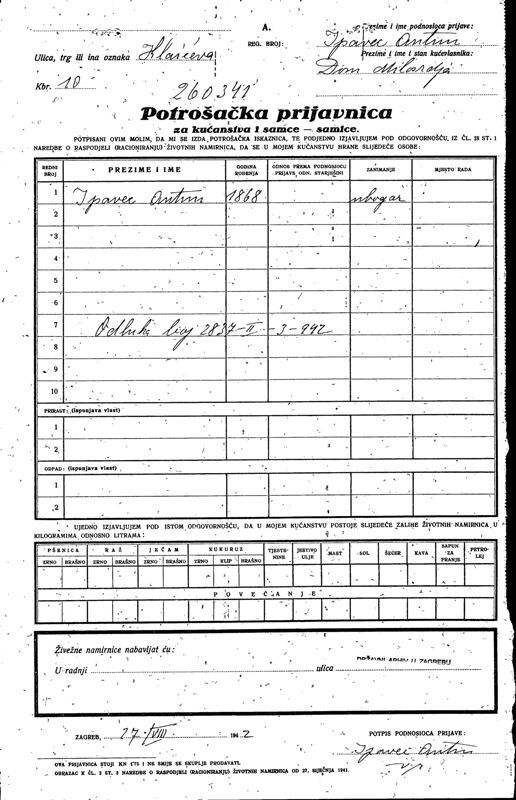 A.
REG. BROJ:
Prezime i ime podnosioca prijave:
Ipavec Antun
Ulica, trg ili ina oznaka Klaićeva
Prezime i ime i stan kućevlasnika:
Dom Milosrdja
Kbr. 10
260341
Potrošačka prijavnica
za kućanstva i samce — samice.
POTPISANI OVIM MOLIM, DA MI SE IZDA POTROŠAČKA ISKAZNICA, TE PODJEDNO IZJAVLJUJEM POD ODGOVORNOŠĆU, IZ ČL. 18 ST. 1
NAREDBE O RASPODJELI (RACIONIRANJU) ŽIVOTNIH NAMIRNICA, DA SE U MOJEM KUĆANSTVU HRANE SLIJEDEĆE OSOBE:
REDNI BROJ PREZIME I IME GODINA ROĐENJA ODNOS PREMA PODNOSIOCU PRIJAVE ODN. STARJEŠINI ZANIMANJE MJESTO RADA
1 Ipavec Antun 1868 ubogar
2
3
4
5
6
7 Odluka broj 2837-II-3-942
8
9
10
PRIRAST: (ispunjava vlast)
1
2
OTPAD: (ispunjava vlast)
1
2
UJEDNO IZJAVLJUJEM POD ISTOM ODGOVORNOŠĆU, DA U MOJEM KUĆANSTVU POSTOJE SLIJEDEĆE ZALIHE ŽIVOTNIH NAMIRNICA U
KILOGRAMIMA ODNOSNO LITRAMA:
PŠENICA RAŽ JEČAM KUKURUZ TJESTENINE JESTIVO ULJE MAST SOL ŠEĆER KAVA SAPUN ZA PRANJE PETROLEJ
ZRNO BRAŠNO ZRNO BRAŠNO ZRNO BRAŠNO ZRNO KLIP BRAŠNO
POVEĆANJE
Živežne namirnice nabavljat ću:
DRŽAVNI ARHIV U ZAGREBU
U radnji ulica
ZAGREB, 27. VIII 1942
POTPIS PODNOSIOCA PRIJAVE:
Ipavec Antun
OVA PRIJAVNICA STOJI KN 0.75 I NE SMIJE SE SKUPLJE PRODAVATI.
OBRAZAC K ČL. 2 ST. 2 NAREDBE O RASPODJELI (RACIONIRANJU) ŽIVOTNIH NAMIRNICA OD 27. SIJEČNJA 1941.